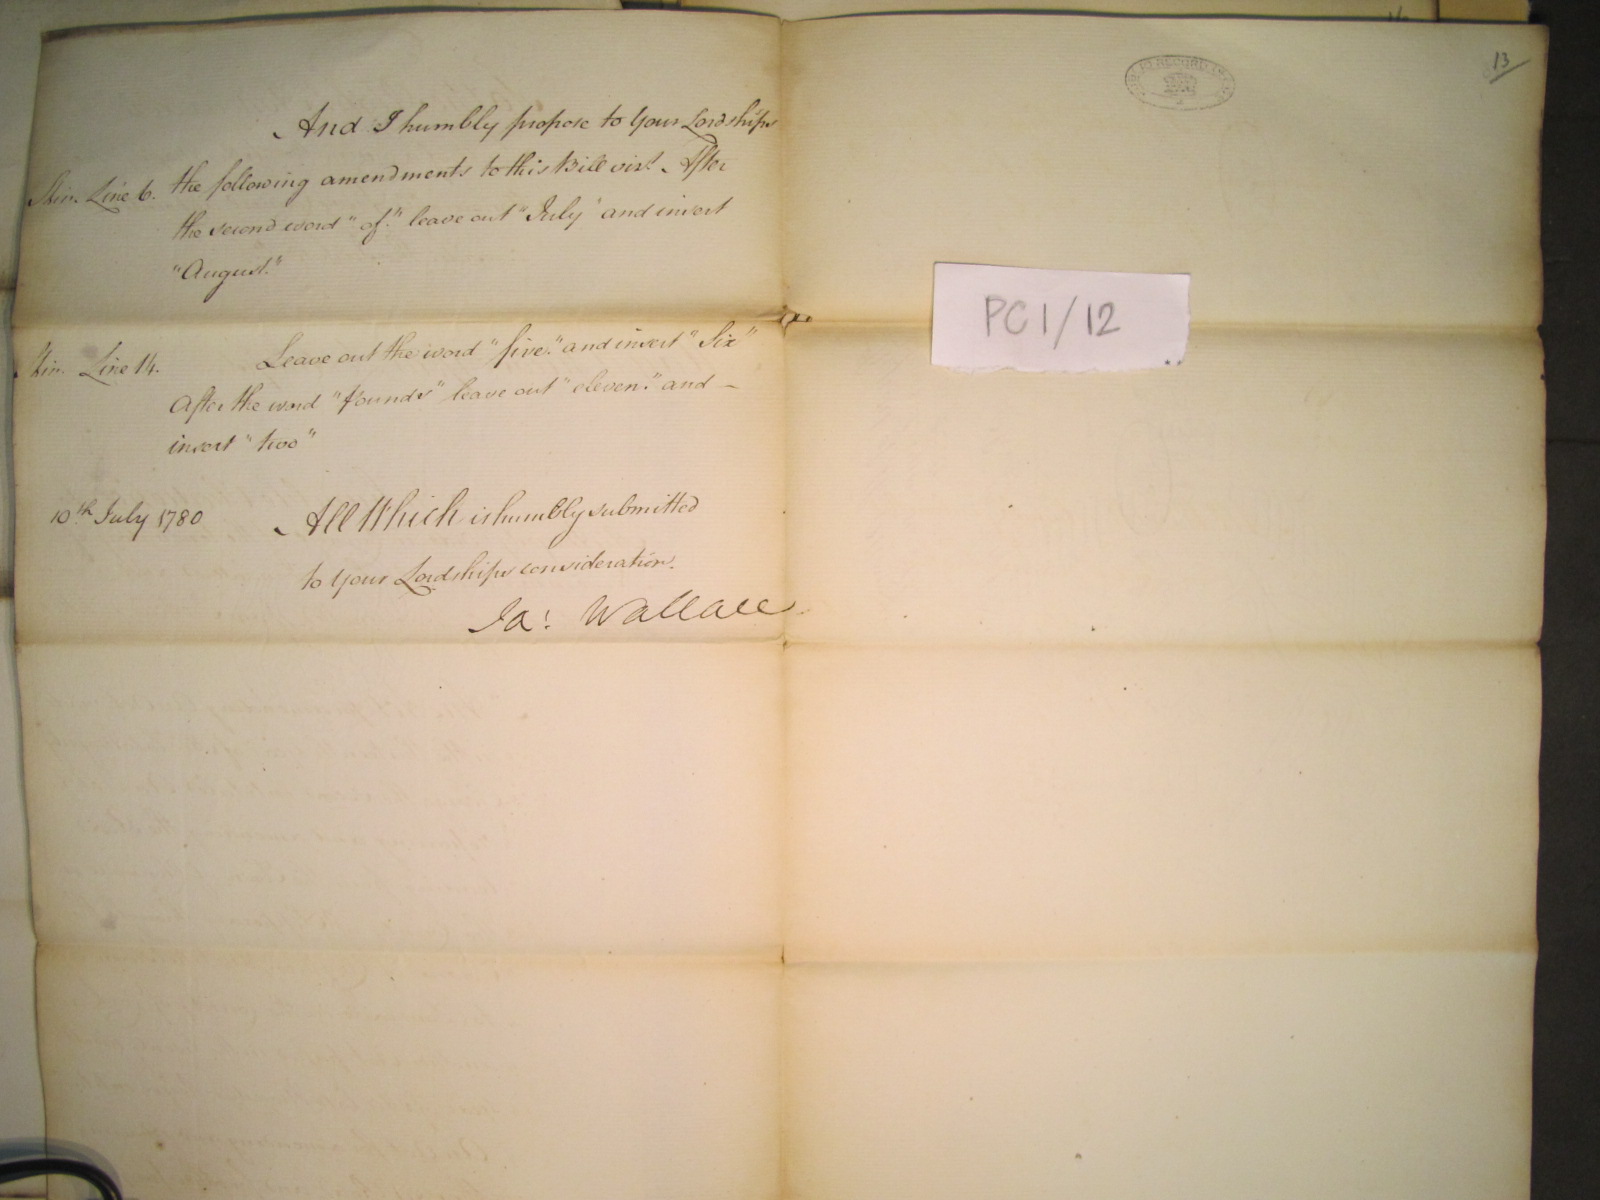 And I humbly propose to your Lordships
Skin. Line 6. the following amendments to this Bill vizt. After
the second word "of" leave out "July" and insert
"August."
Skin. Line 14. Leave out the word "five" and insert "Six"
After the word "Pounds" leave out "eleven" and
insert "two"
10th July 1780 All Which is humbly submitted
to your Lordships consideration.
Ja: Wallace
13
PC1/12